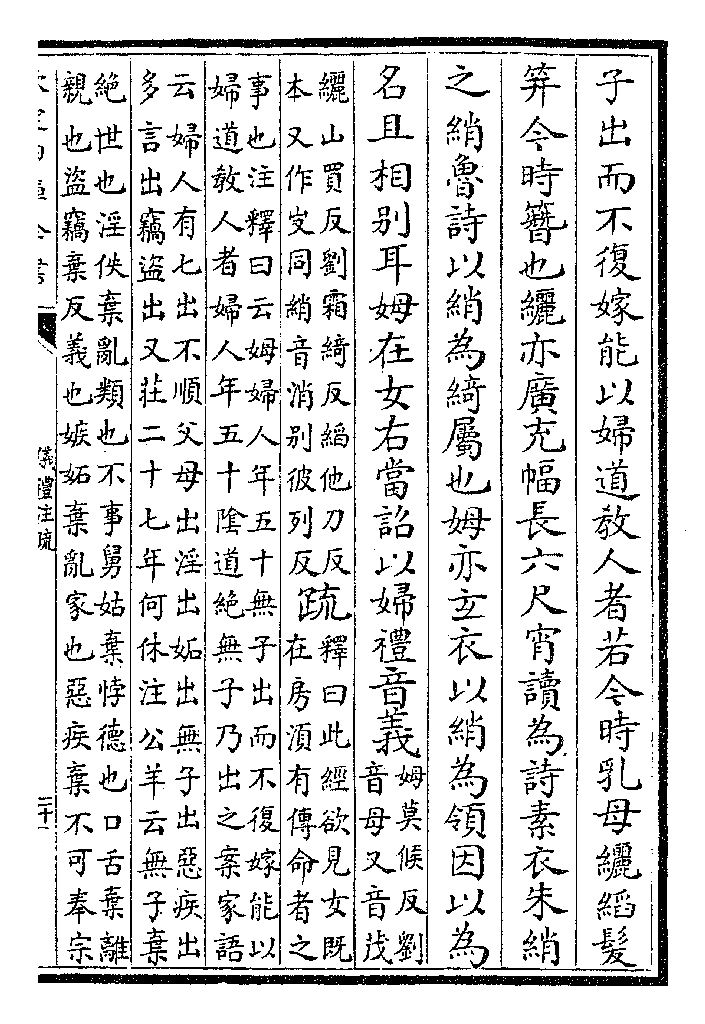 子出而不復嫁能以婦道教人者若今時乳母纚縚髮
筓今時簪也纚亦廣充幅長六尺宵讀為詩素衣朱綃
之綃魯詩以綃為綺屬也姆亦𤣥衣以綃為領因以為
名且相别耳姆在女右當詔以婦禮音義姆莫候反劉
音母又音茂
纚山買反劉霜綺反縚他刀反
本又作㚑同綃音消别彼列反疏釋曰此經欲見女既
在房湏有傳命者之
事也注釋曰云姆婦人年五十無子出而不復嫁能以
婦道教人者婦人年五十隂道絶無子乃出之案家語
云婦人有七出不順父母出淫出妬出無子出惡疾出
多言出竊盗出又莊二十七年何休注公羊云無子棄
絶世也淫佚棄亂類也不事舅姑棄悖德也口舌棄離
親也盗竊棄反義也嫉妬棄亂家也惡疾棄不可奉宗
儀禮注疏